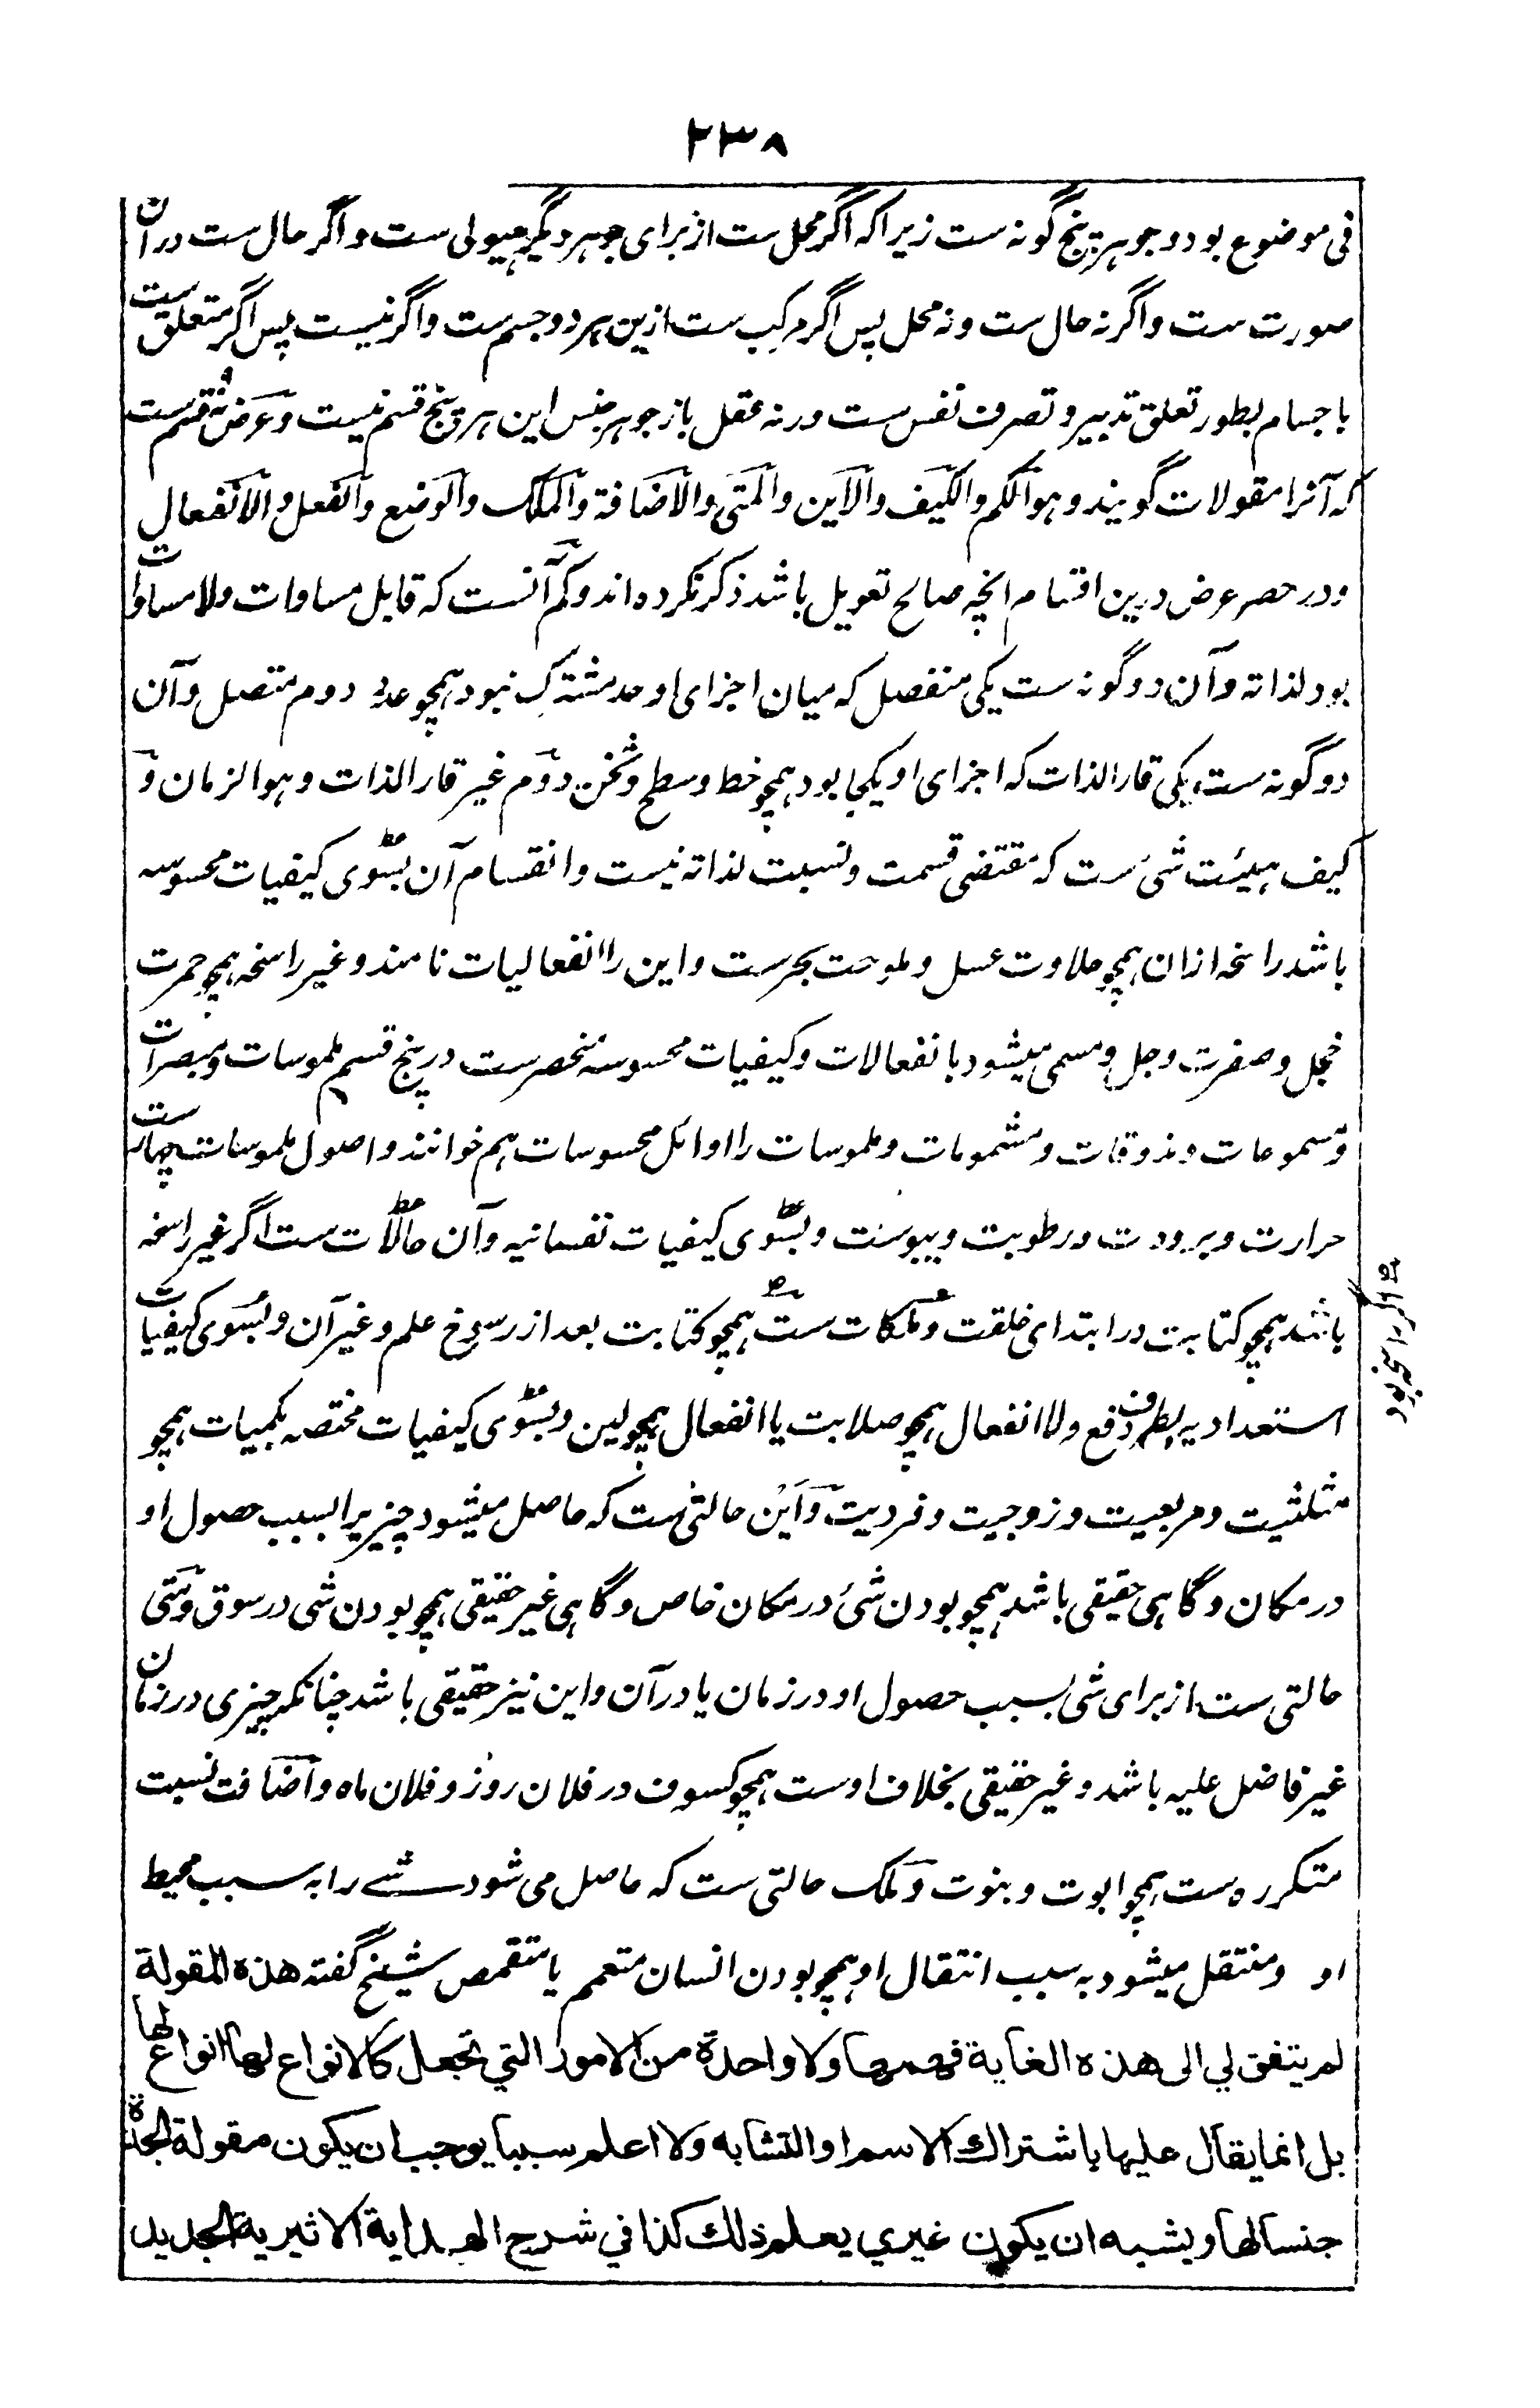 ۲۳۸
فی موضوع بود و جوهر پنج گونه ست زیرا که اگر محل ست از برای جوهر دیگر هیولی ست و اگر حال ست در آن
صورت ست و اگر نه حال ست و نه محل پس اگر مرکب ست ازین هر دو جسم ست و اگر نیست پس اگر متعلق ست
با جسام بطور تعلق تدبیر و تصرف نفس ست ورنه عقل باز جوهر جنس این هر پنج قسم نیست و عرض نه قسم ست
که آنرا مقولات گویند و هو الکم والکیف والاین والمتی والاضافة والملک والوضع والفعل والانفعال
و در حصر عرض درین اقسام انچه صالح تعویل باشد ذکر نکرده اند و کم آنست که قابل مساوات ولا مساوات
بود لذاته و آن دو گونه ست یکی منفصل که میان اجزای او حد مشترک نبود همچو عدد دوم متصل و آن
دو گونه ست یکی قار الذات که اجزای او یکجا بود همچو خط و سطح و ثخن دوم غیر قار الذات و هو الزمان و
کیف هیئت شئ ست که مقتضی قسمت و نسبت لذاته نیست و انقسام آن بسوی کیفیات محسوسه
باشد راسخه ازان همچو حلاوت عسل و ملوحت بحرست و این را انفعالیات نامند و غیر راسخه همچو حمرت
خجل و صفرت وجل و مسمی میشود بانفعالات و کیفیات محسوسه منحصرست در پنج قسم ملموسات و مبصرات
و مسموعات و مذوقات و مشمومات و ملموسات را اوائل محسوسات هم خوانند و اصول ملموسات چهار ست
حرارت و برودت و رطوبت و یبوست و بسوی کیفیات نفسانیه و آن حالات ست اگر غیر راسخه
باشد همچو کتابت در ابتدای خلقت و ملکات ست همچو کتابت بعد از رسوخ علم و غیر آن و بسوی کیفیات
اگر راسخه بود
استعدادیه بطرف دفع ولا انفعال همچو صلابت یا انفعال همچو لین و بسوی کیفیات مختصه بکمیات همچو
مثلثیت و مربعیت و زوجیت و فردیت و این حالتی ست که حاصل میشود چیزیرا بسبب حصول او
در مکان و گاهی حقیقی باشد همچو بودن شئ در مکان خاص و گاهی غیر حقیقی همچو بودن شی در سوق و متی
حالتی ست از برای شی بسبب حصول او در زمان یا در آن و این نیز حقیقی باشد چنانکه چیزی در زمان
غیر فاضل علیه باشد و غیر حقیقی بخلاف اوست همچو کسوف در فلان روز و فلان ماه و اضافت نسبت
متکرره ست همچو ابوت و بنوت و ملک حالتی ست که حاصل می شود شے را به سبب محیط
او و منتقل میشود به سبب انتقال او همچو بودن انسان متعمم یا متقمص شیخ گفته هذه المقولة
لم یتفق لي الی هذه الغایة فهمها ولا واحدة من الامور التي تجعل کالانواع لها انواع لها
بل انما یقال علیها باشتراك الاسم او التشابه ولا اعلم سببا یوجب ان یکون مقولة الجدة
جنسا لها و یشبه ان یکون غیري یعلم ذلك کذا في شرح الهدایة الاثیریة الجدید